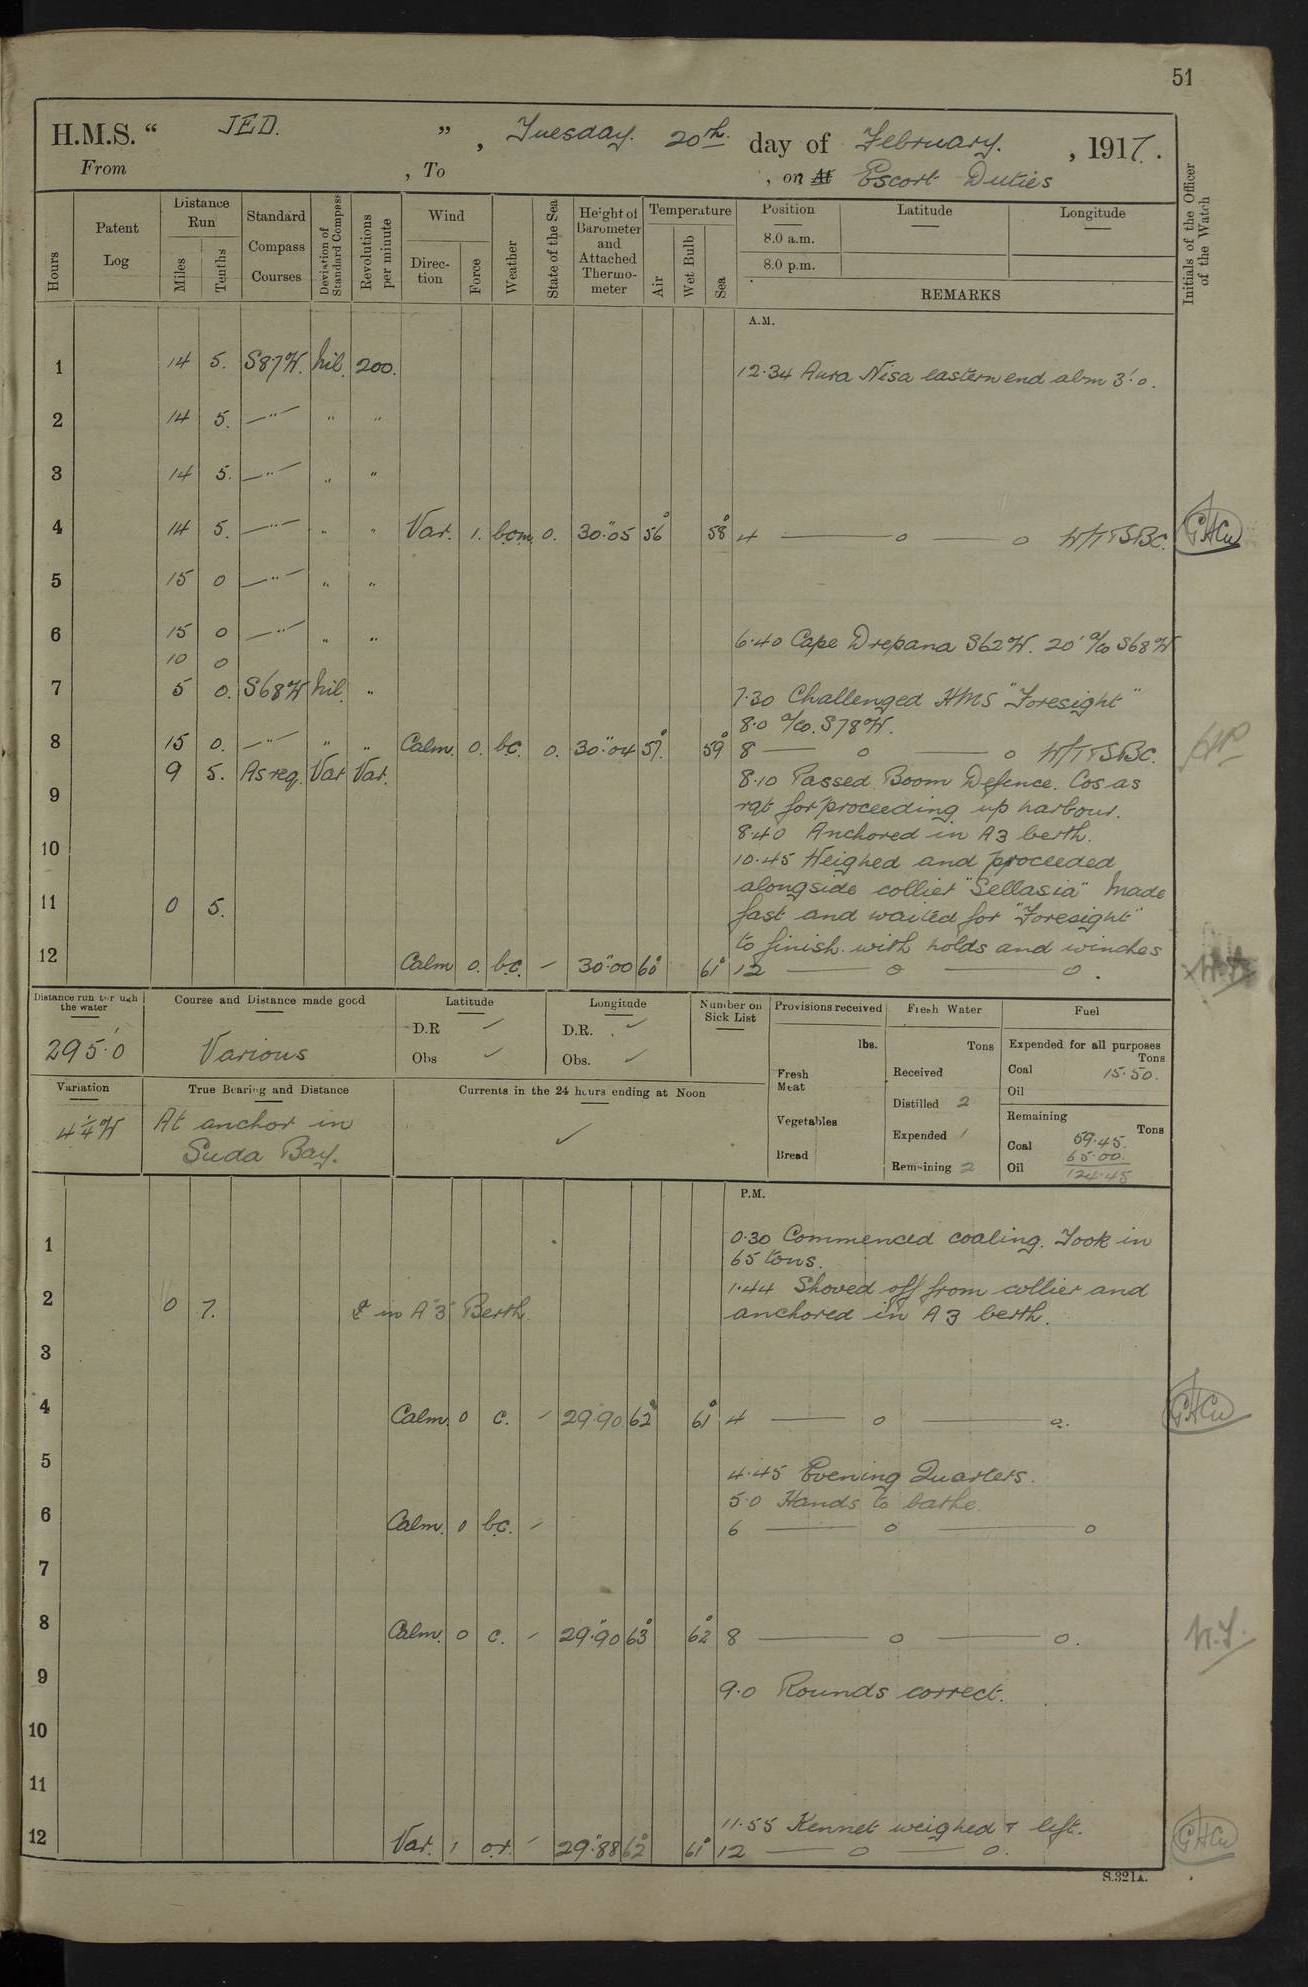 51
H.M.S. “ JED. ” , Tuesday. 20th day of February. , 1917.
From , To , on At Escort Duties
Hours
Patent Log
Distance Run
Miles
Tenths
Standard Compass Courses
Deviation of Standard Compass
Revolutions per minute
Wind
Direction
Force
Weather
State of the Sea
Height of Barometer and Attached Thermometer
Temperature
Air
Wet Bulb
Sea
Position Latitude Longitude
8.0 a.m.
8.0 p.m.
REMARKS
Initials of the Officer of the Watch
A.M.
1 14 5. S87W. nil. 200. 12.34 Nisa eastern end abm 3'.0.
2 14 5. —"— " "
3 14 5. —"— " "
4 14 5. —"— " " Var. 1. b.c.m. 0. 30".05 56° 58° 4 —— o —— o W/T TSBC. GHCu
5 15 0 —"— " "
6 15 0 —"— " " 6.40 Cape Drepana S62W. 20' a/co S68W
10 0
7 5 0. S68W nil. " 7.30 Challenged HMS "Foresight"
8.0 a/co. S78W.
8 15 0. —"— " " Calm. 0. bc. 0. 30".04 57°. 59° 8 —— o —— o W/T TSBC.
9 5. As req. Var Var. 8.10 Passed Boom Defence. Cos as
9 rqt for proceeding up harbour.
8.40 Anchored in A3 berth.
10 10.45 Weighed and proceeded
alongside collier "Sellasia" Made
11 0 5. fast and waited for "Foresight"
to finish with holds and winches
12 Calm 0. b.c. — 30".00 60° 61° 12 —— o —— o.
Distance run through the water
295'.0
Course and Distance made good
Various
Latitude
D.R ✓
Obs ✓
Longitude
D.R. ✓
Obs. ✓
Number on Sick List
Provisions received
lbs.
Fresh Meat
Vegetables
Bread
Fresh Water
Tons
Received
Distilled 2
Expended 1
Remaining 2
Fuel
Expended for all purposes
Tons
Coal 15.50.
Oil
Remaining
Tons
Coal 59.45.
65.00.
Oil 124.45
Variation
4¼W
True Bearing and Distance
At anchor in
Suda Bay.
Currents in the 24 hours ending at Noon
✓
P.M.
1 0.30 Commenced coaling. Took in
65 tons.
1.44 Shoved off from collier and
2 0 7. in A"3" Berth anchored in A3 berth.
3
4 Calm 0 c. — 29.90 62° 61° 4 —— o —— o.
5 4.45 Evening Quarters.
5.0 Hands to bathe.
6 Calm. 0 b.c. — 6 —— o —— o
7
8 Calm. 0 c. — 29".90 63° 62° 8 —— o —— o.
9 9.0 Rounds correct.
10
11
11.55 Kennet weighed & left.
12 Var. 1 o.r. — 29".88 62° 61° 12 —— o —— o.
S.321A.